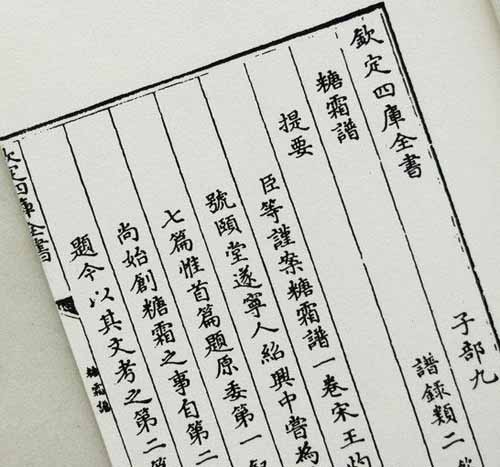 欽定四庫全書 子部九
糖霜譜 譜錄類二
提要
臣等謹案糖霜譜一卷宋王灼
號頤堂遂寧人紹興中嘗為
七篇惟首篇題原委第一
尚始創糖霜之事自第二
題今以其文考之第二
欽定四庫全書
糖霜譜